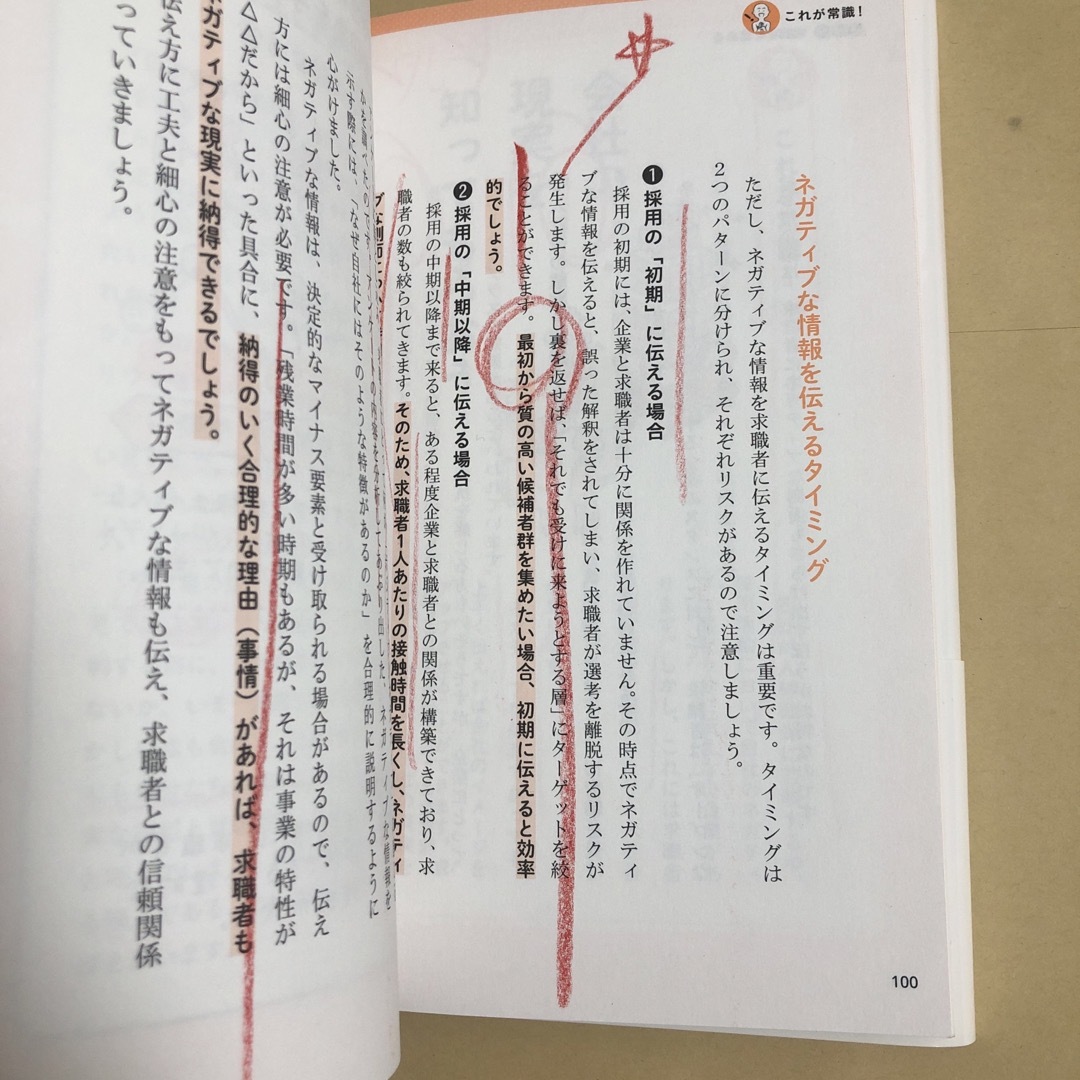 これが常識！
ネガティブな情報を伝えるタイミング
ただし、ネガティブな情報を求職者に伝えるタイミングは重要です。タイミングは
２つのパターンに分けられ、それぞれリスクがあるので注意しましょう。
❶採用の「初期」に伝える場合
採用の初期には、企業と求職者は十分に関係を作れていません。その時点でネガティ
ブな情報を伝えると、誤った解釈をされてしまい、求職者が選考を離脱するリスクが
発生します。しかし裏を返せば、「それでも受けに来ようとする層」にターゲットを絞
ることができます。最初から質の高い候補者群を集めたい場合、初期に伝えると効率
的でしょう。
❷採用の「中期以降」に伝える場合
採用の中期以降まで来ると、ある程度企業と求職者との関係が構築できており、求
職者の数も絞られてきます。そのため、求職者１人あたりの接触時間を長くし、ネガティ
100
示す際には、「なぜ自社にはそのような特徴があるのか」を合理的に説明するように
心がけました。
ネガティブな情報は、決定的なマイナス要素と受け取られる場合があるので、伝え
方には細心の注意が必要です。「残業時間が多い時期もあるが、それは事業の特性が
△△だから」といった具合に、納得のいく合理的な理由（事情）があれば、求職者も
ネガティブな現実に納得できるでしょう。
伝え方に工夫と細心の注意をもってネガティブな情報も伝え、求職者との信頼関係
っていきましょう。